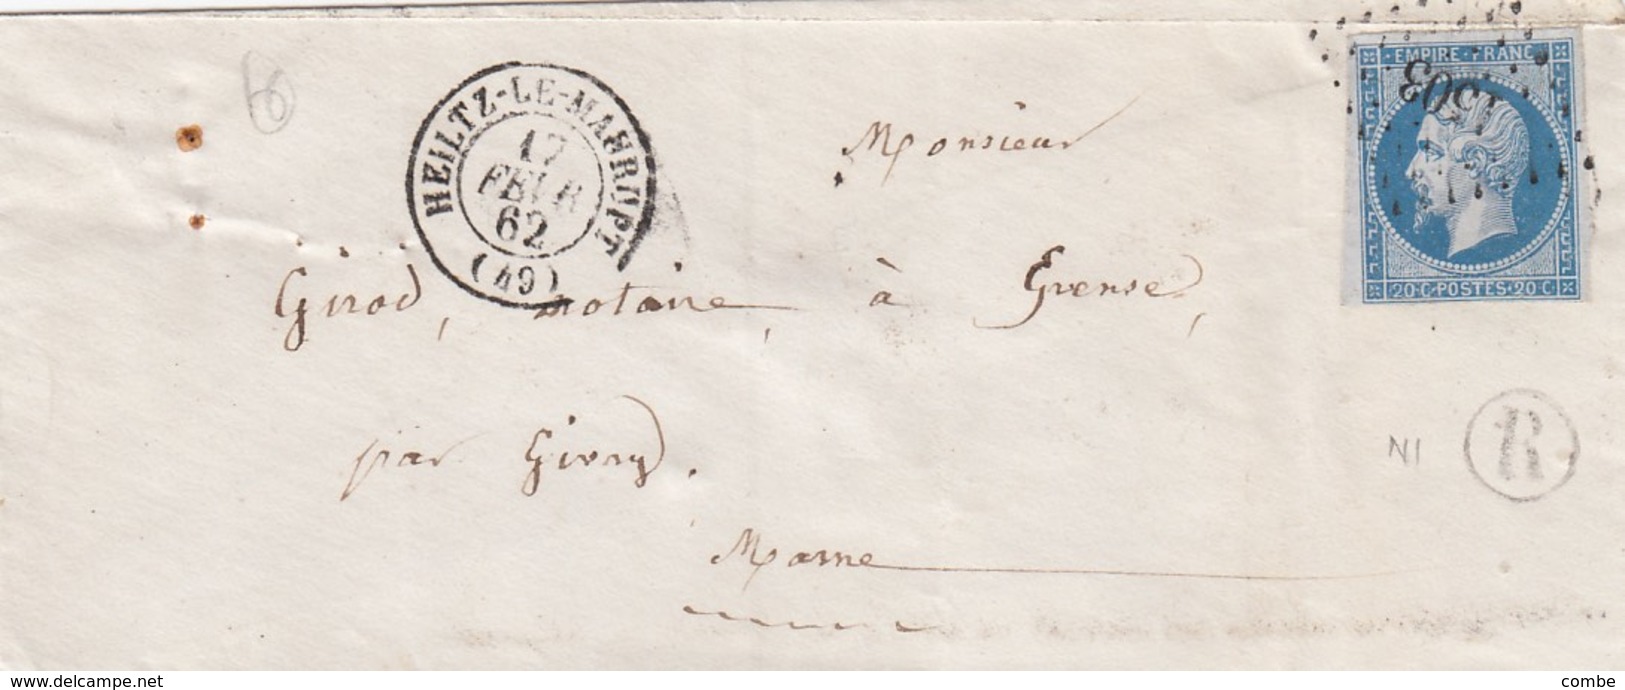 HEILTZ-LE-MAURUPT
17
FEVR
62
(49)
EMPIRE · FRANC
20·C·POSTES·20 C
Monsieur
Girod, notaire à
par Givry.
Marne
N1
R
www.delcampe.net
combe